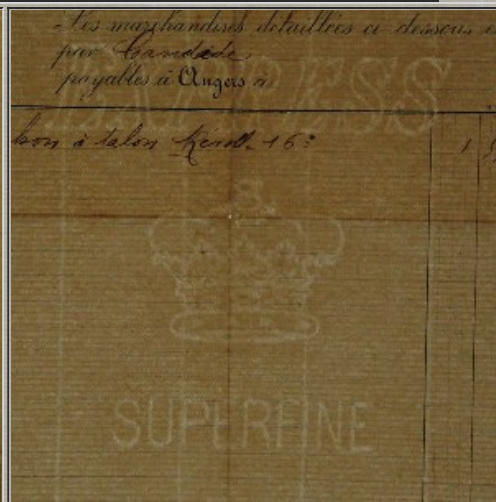 Les marchandises détaillées ci dessous
par Candide
payables à Angers
PRESS
bon à talon 16
S.
SUPERFINE